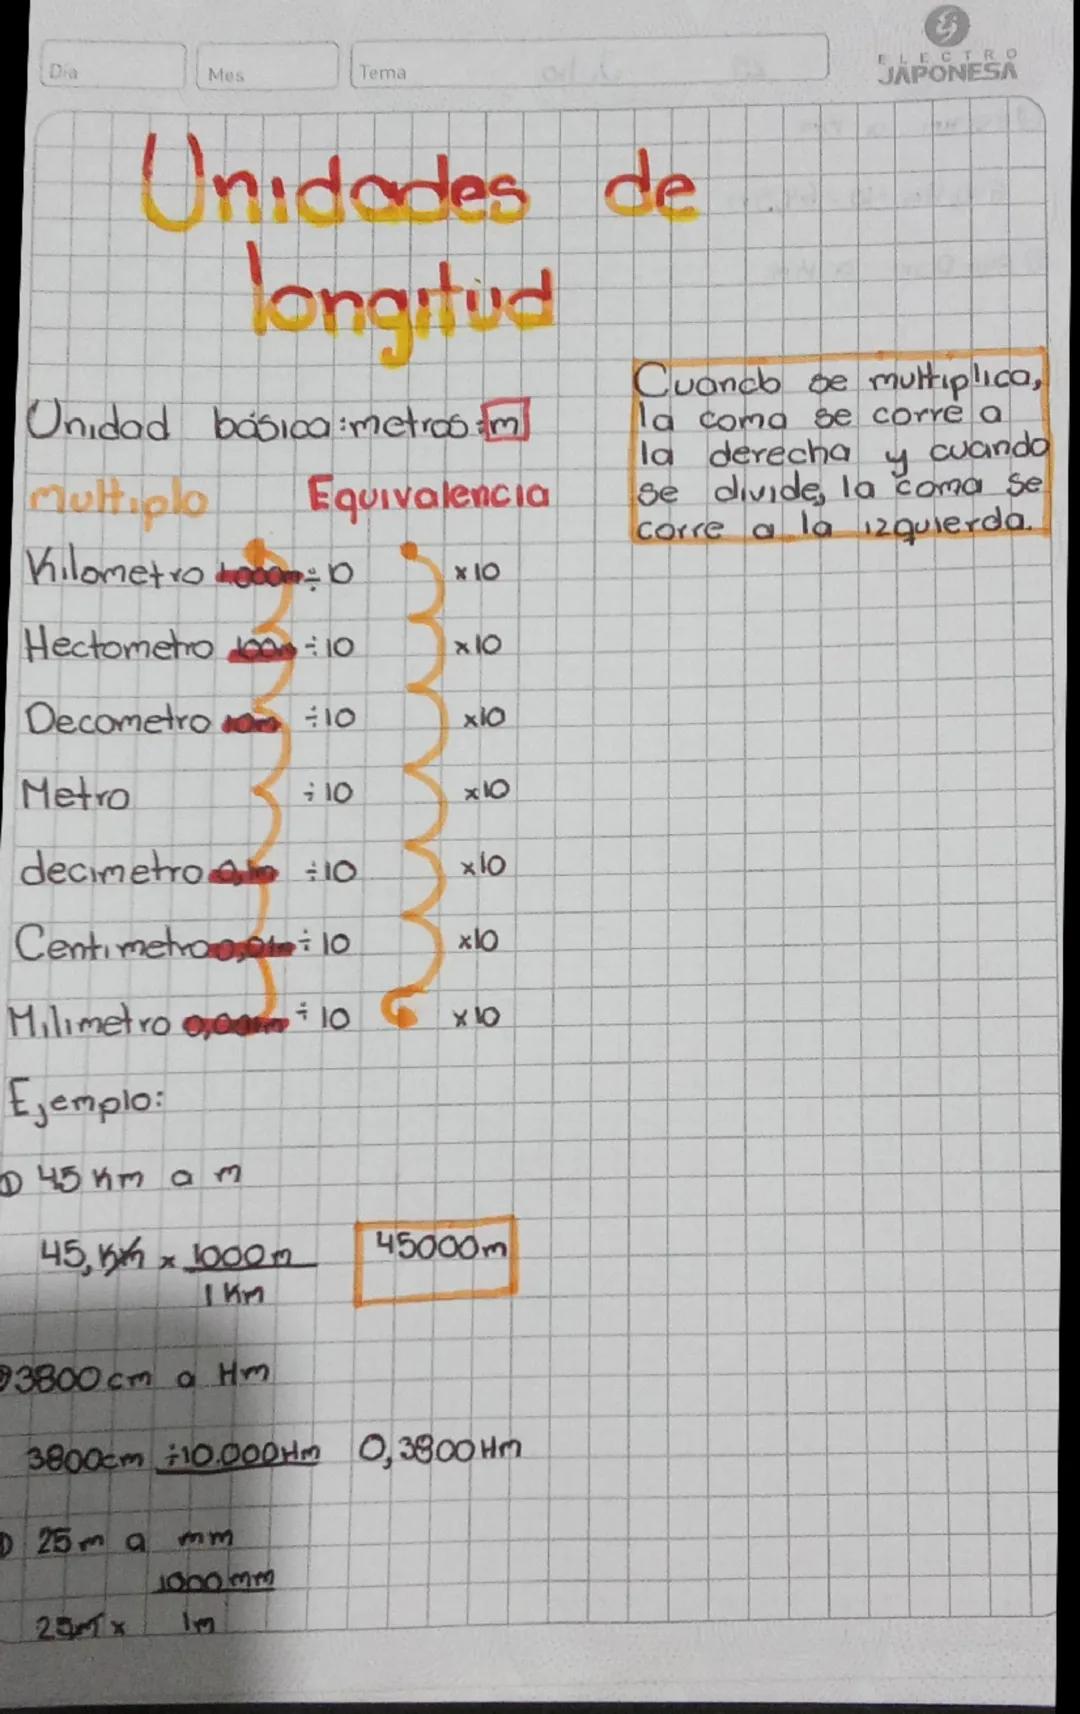 Día
Mes
Tema
ELECTRO
JAPONESA
Unidades de
longitud
Cuando se multiplica,
la coma se corre a
la derecha y cuando
se divide, la coma se
corre a la izquierda.
Unidad básica:metros:m
multiplo Equivalencia
Kilometro 1000m ÷10 x10
Hectometro 100m ÷10 x10
Decametro 10m ÷10 x10
Metro ÷10 x10
decimetro 0,1m ÷10 x10
Centimetro 0,01m ÷10 x10
Milimetro ÷10 x10
Ejemplo:
① 45 Km a m
45, Km x 1000m 45000m
1 Km
3800cm a Hm
3800cm ÷10.000Hm 0,3800Hm
25m a mm
1000mm
25m x 1m